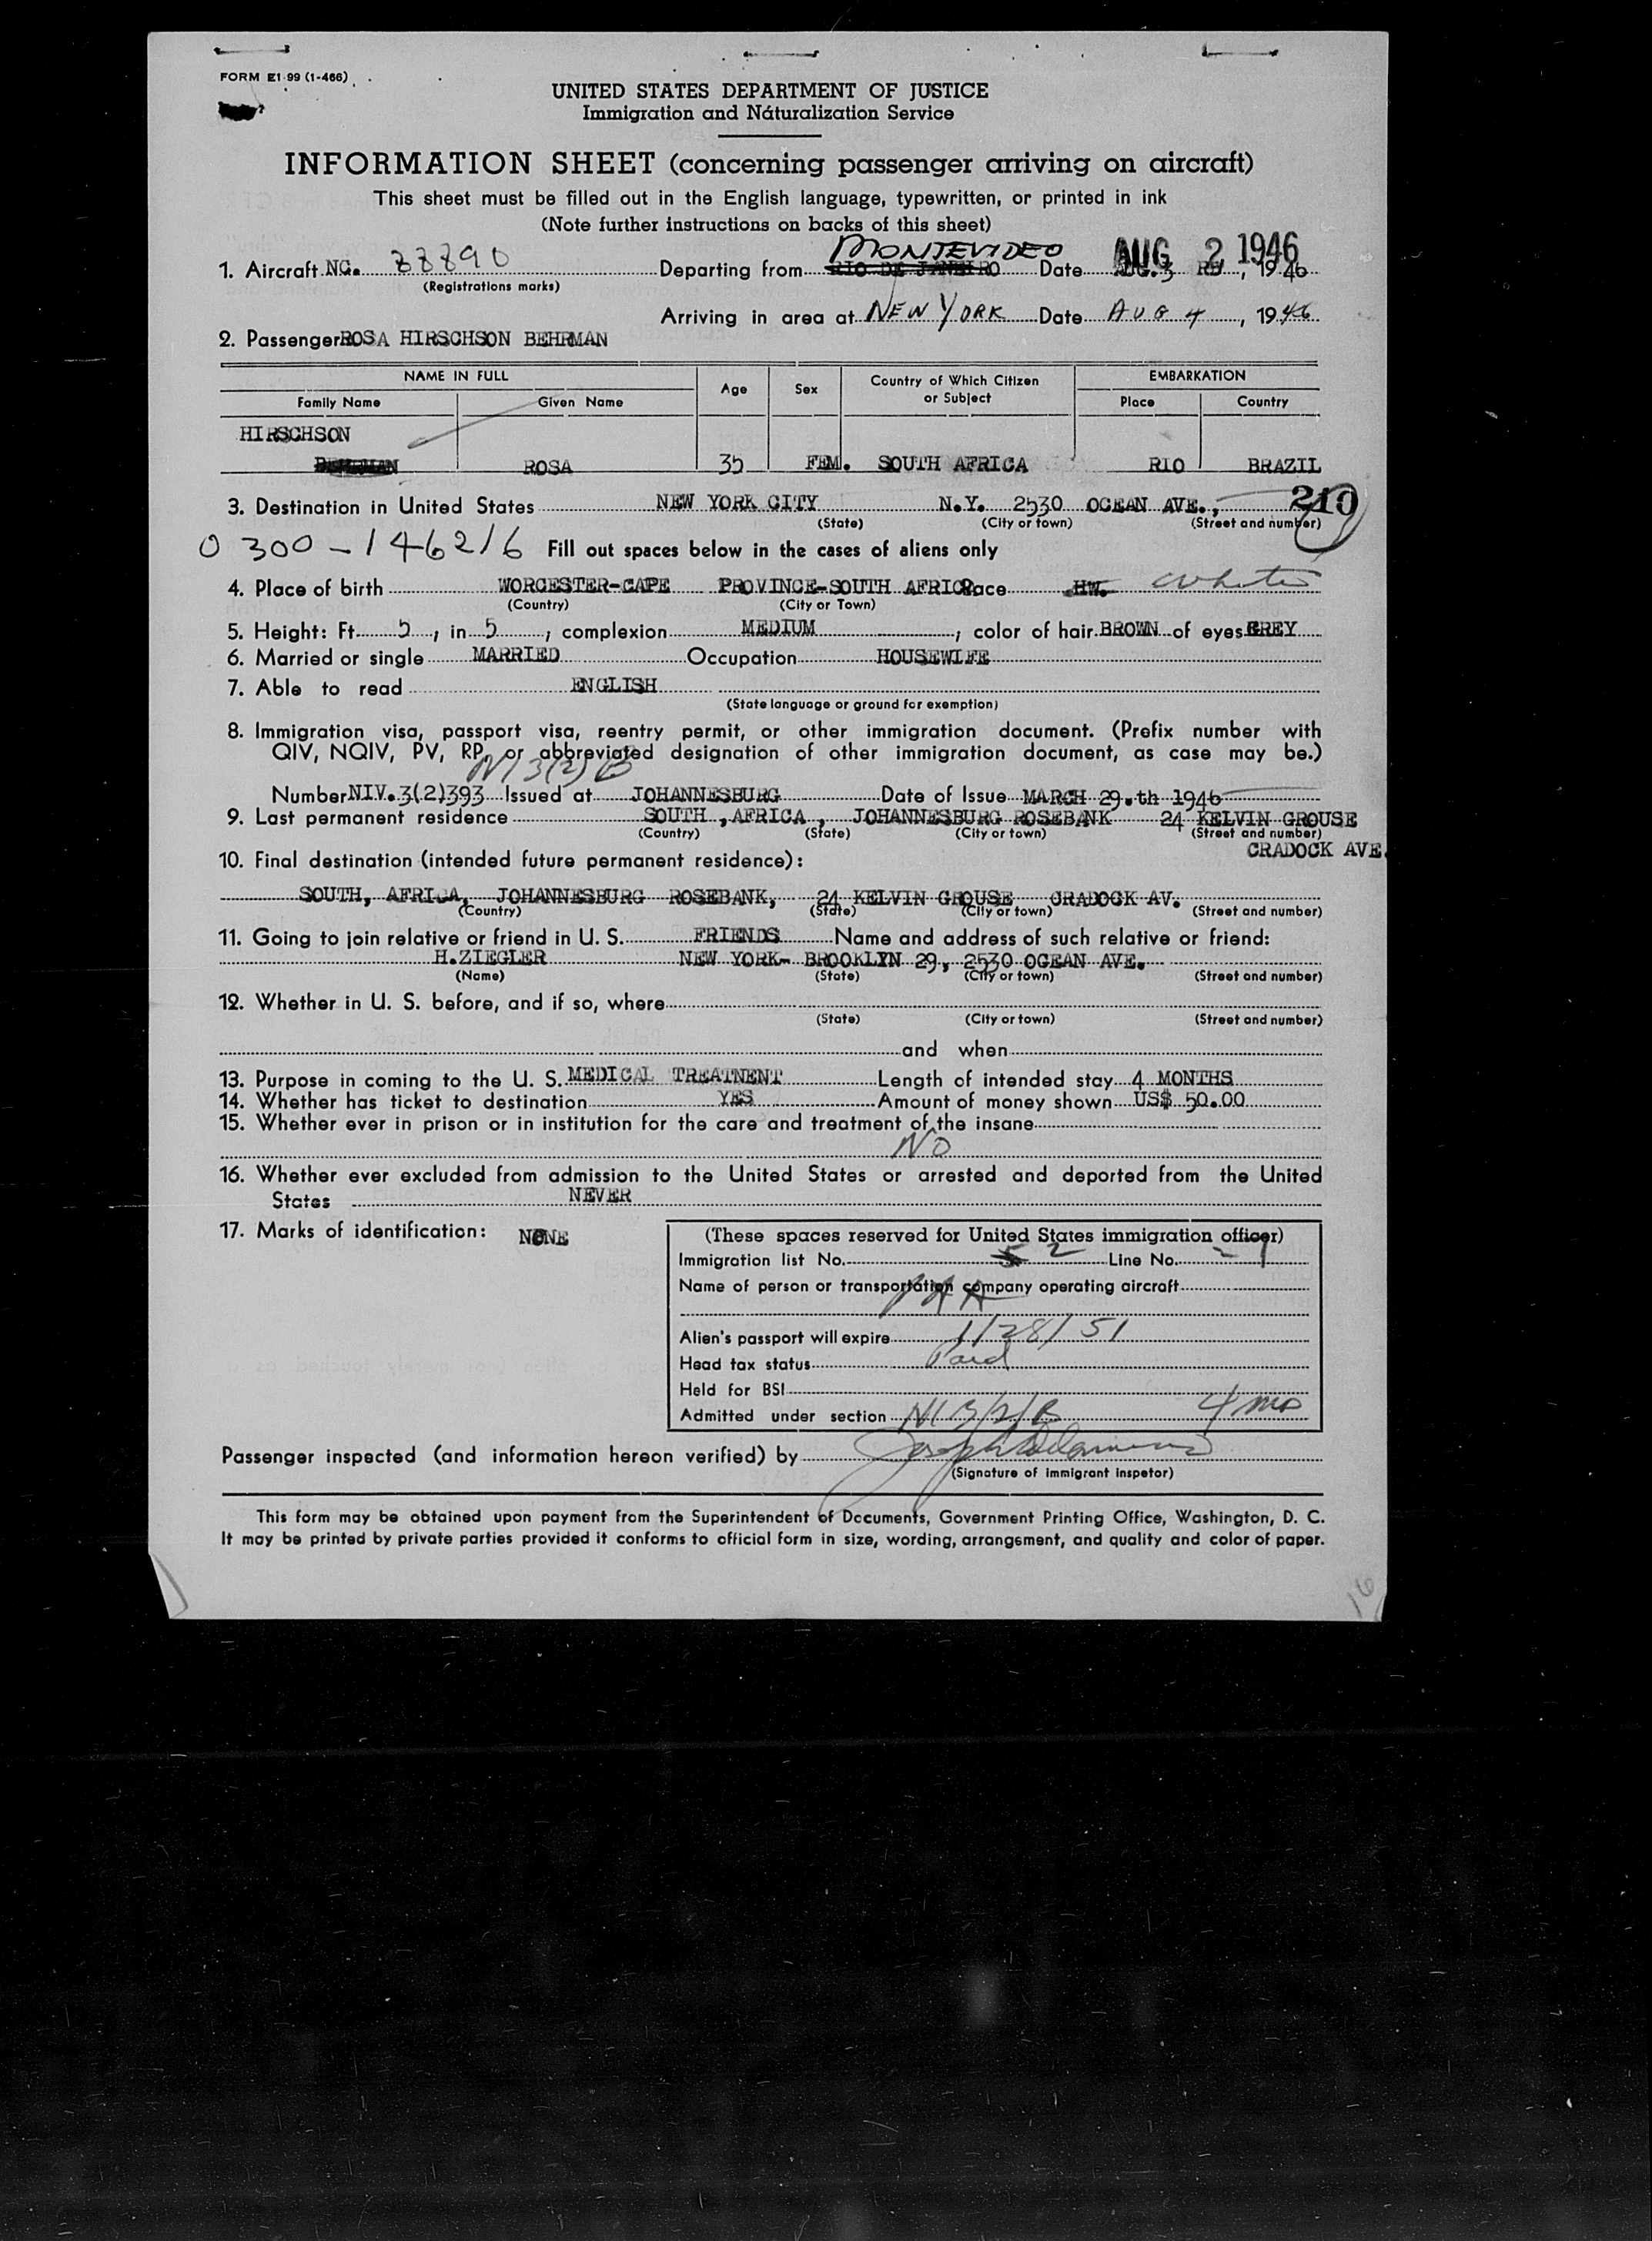 FORM E1-99 (1-466)
UNITED STATES DEPARTMENT OF JUSTICE
Immigration and Naturalization Service
INFORMATION SHEET (concerning passenger arriving on aircraft)
This sheet must be filled out in the English language, typewritten, or printed in ink
(Note further instructions on backs of this sheet)
MONTEVIDEO AUG 2 1946
1. Aircraft NC. 88890 Departing from RIO DE JANEIRO Date AUG. 3 RD, 1946
(Registrations marks)
Arriving in area at NEW YORK Date AUG 4, 1946
2. Passenger ROSA HIRSCHSON BEHRMAN
NAME IN FULL Age Sex Country of Which Citizen or Subject EMBARKATION
Family Name Given Name Place Country
HIRSCHSON
BEHRMAN ROSA 35 FEM. SOUTH AFRICA RIO BRAZIL
3. Destination in United States NEW YORK CITY N.Y. 2530 OCEAN AVE., 210
(State) (City or town) (Street and number)
0 300-146216 Fill out spaces below in the cases of aliens only
4. Place of birth WORCESTER-CAPE PROVINCE-SOUTH AFRICA Race HW. White
(Country) (City or Town)
5. Height: Ft. 5, in 5, complexion MEDIUM; color of hair BROWN of eyes GREY
6. Married or single MARRIED Occupation HOUSEWIFE
7. Able to read ENGLISH
(State language or ground for exemption)
8. Immigration visa, passport visa, reentry permit, or other immigration document. (Prefix number with
QIV, NQIV, PV, RP, or abbreviated designation of other immigration document, as case may be.)
NI 3(2) B
Number NIV. 3(2)393 Issued at JOHANNESBURG Date of Issue MARCH 29.th 1946
9. Last permanent residence SOUTH, AFRICA, JOHANNESBURG ROSEBANK 24 KELVIN GROUSE
(Country) (State) (City or town) (Street and number)
CRADOCK AVE.
10. Final destination (intended future permanent residence):
SOUTH, AFRICA, JOHANNESBURG ROSEBANK, 24 KELVIN GROUSE CRADOCK AV.
(Country) (State) (City or town) (Street and number)
11. Going to join relative or friend in U. S. FRIENDS Name and address of such relative or friend:
H.ZIEGLER NEW YORK- BROOKLYN 29, 2530 OCEAN AVE.
(Name) (State) (City or town) (Street and number)
12. Whether in U. S. before, and if so, where
(State) (City or town) (Street and number)
and when
13. Purpose in coming to the U. S. MEDICAL TREATNENT Length of intended stay 4 MONTHS
14. Whether has ticket to destination YES Amount of money shown US$ 50.00
15. Whether ever in prison or in institution for the care and treatment of the insane
NO
16. Whether ever excluded from admission to the United States or arrested and deported from the United
States NEVER
17. Marks of identification: NONE
(These spaces reserved for United States immigration officer)
Immigration list No. 2 Line No.
Name of person or transportation company operating aircraft
PAA
Alien's passport will expire 1/28/51
Head tax status Paid
Held for BSI
Admitted under section NI 3/2/B 4 mo
Passenger inspected (and information hereon verified) by
(Signature of immigrant inspetor)
This form may be obtained upon payment from the Superintendent of Documents, Government Printing Office, Washington, D. C.
It may be printed by private parties provided it conforms to official form in size, wording, arrangement, and quality and color of paper.
16